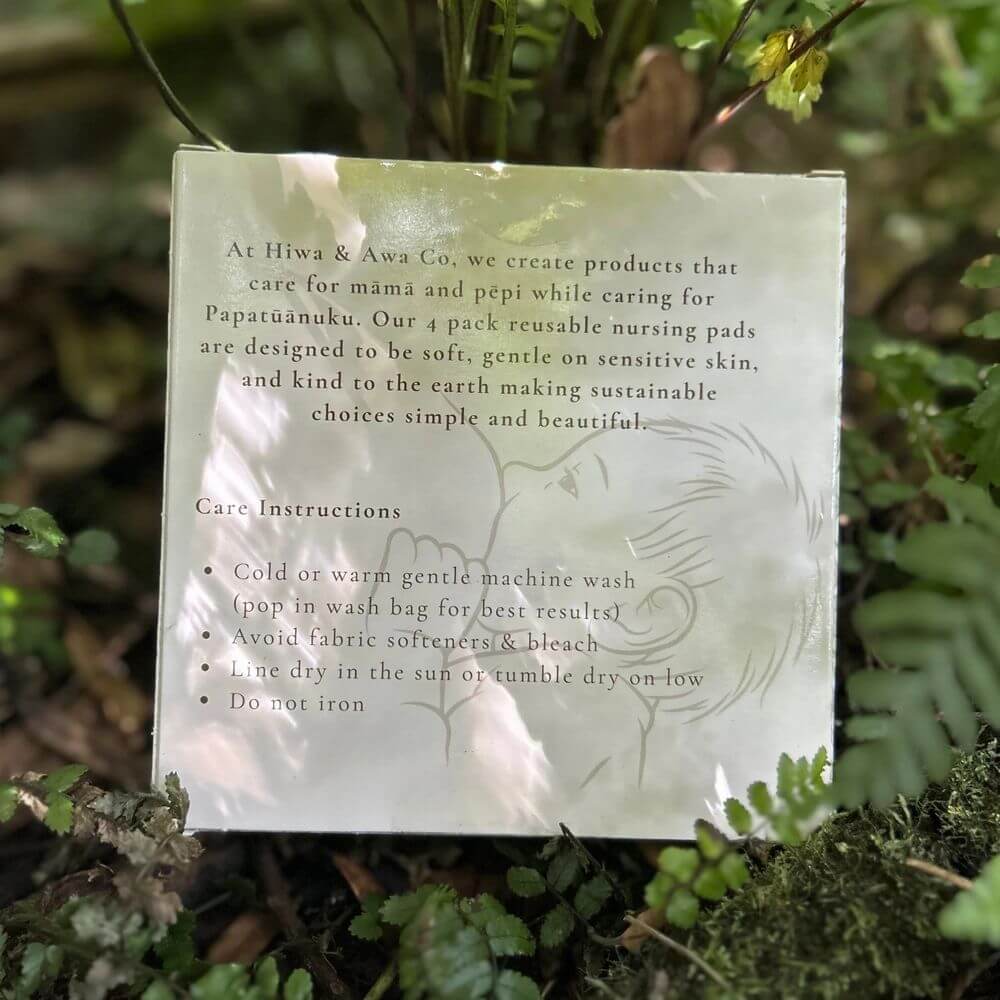 At Hiwa & Awa Co, we create products that
care for māmā and pēpi while caring for
Papatūānuku. Our 4 pack reusable nursing pads
are designed to be soft, gentle on sensitive skin,
and kind to the earth making sustainable
choices simple and beautiful.
Care Instructions
• Cold or warm gentle machine wash
(pop in wash bag for best results)
• Avoid fabric softeners & bleach
• Line dry in the sun or tumble dry on low
• Do not iron